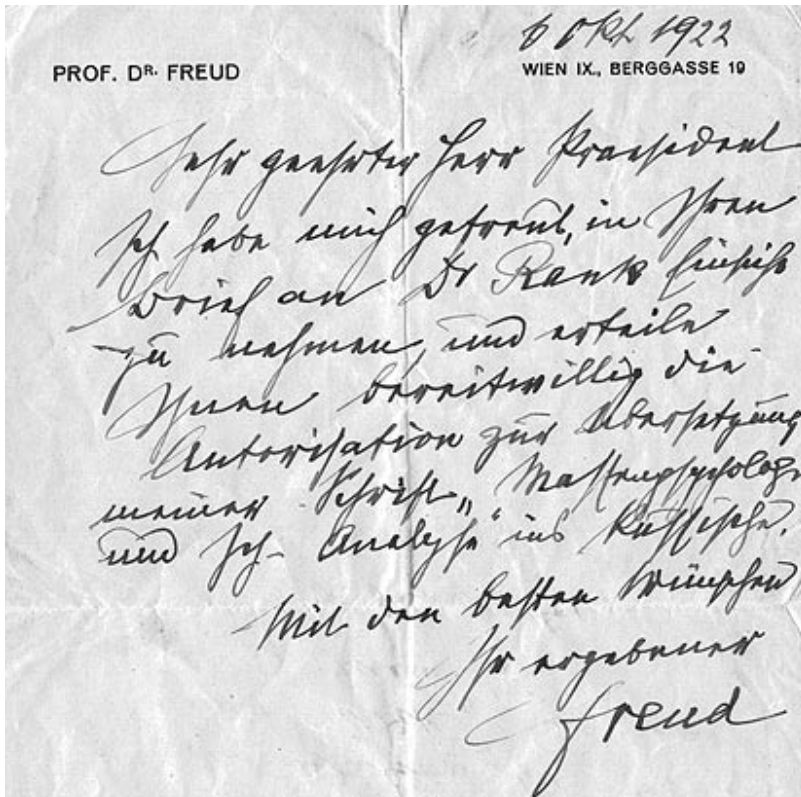 6 Okt 1922
PROF. DR. FREUD
WIEN IX., BERGGASSE 19
Sehr geehrter Herr Praesident
Ich habe mich gefreut, in Ihren
Brief an Dr Rank Einsicht
zu nehmen, und erteile
Ihnen bereitwillig die
Autorisation zur Übersetzung
meiner Schrift „Massenpsychologie
und Ich-Analyse“ ins Russische.
Mit den besten Wünschen
Ihr ergebener
Freud